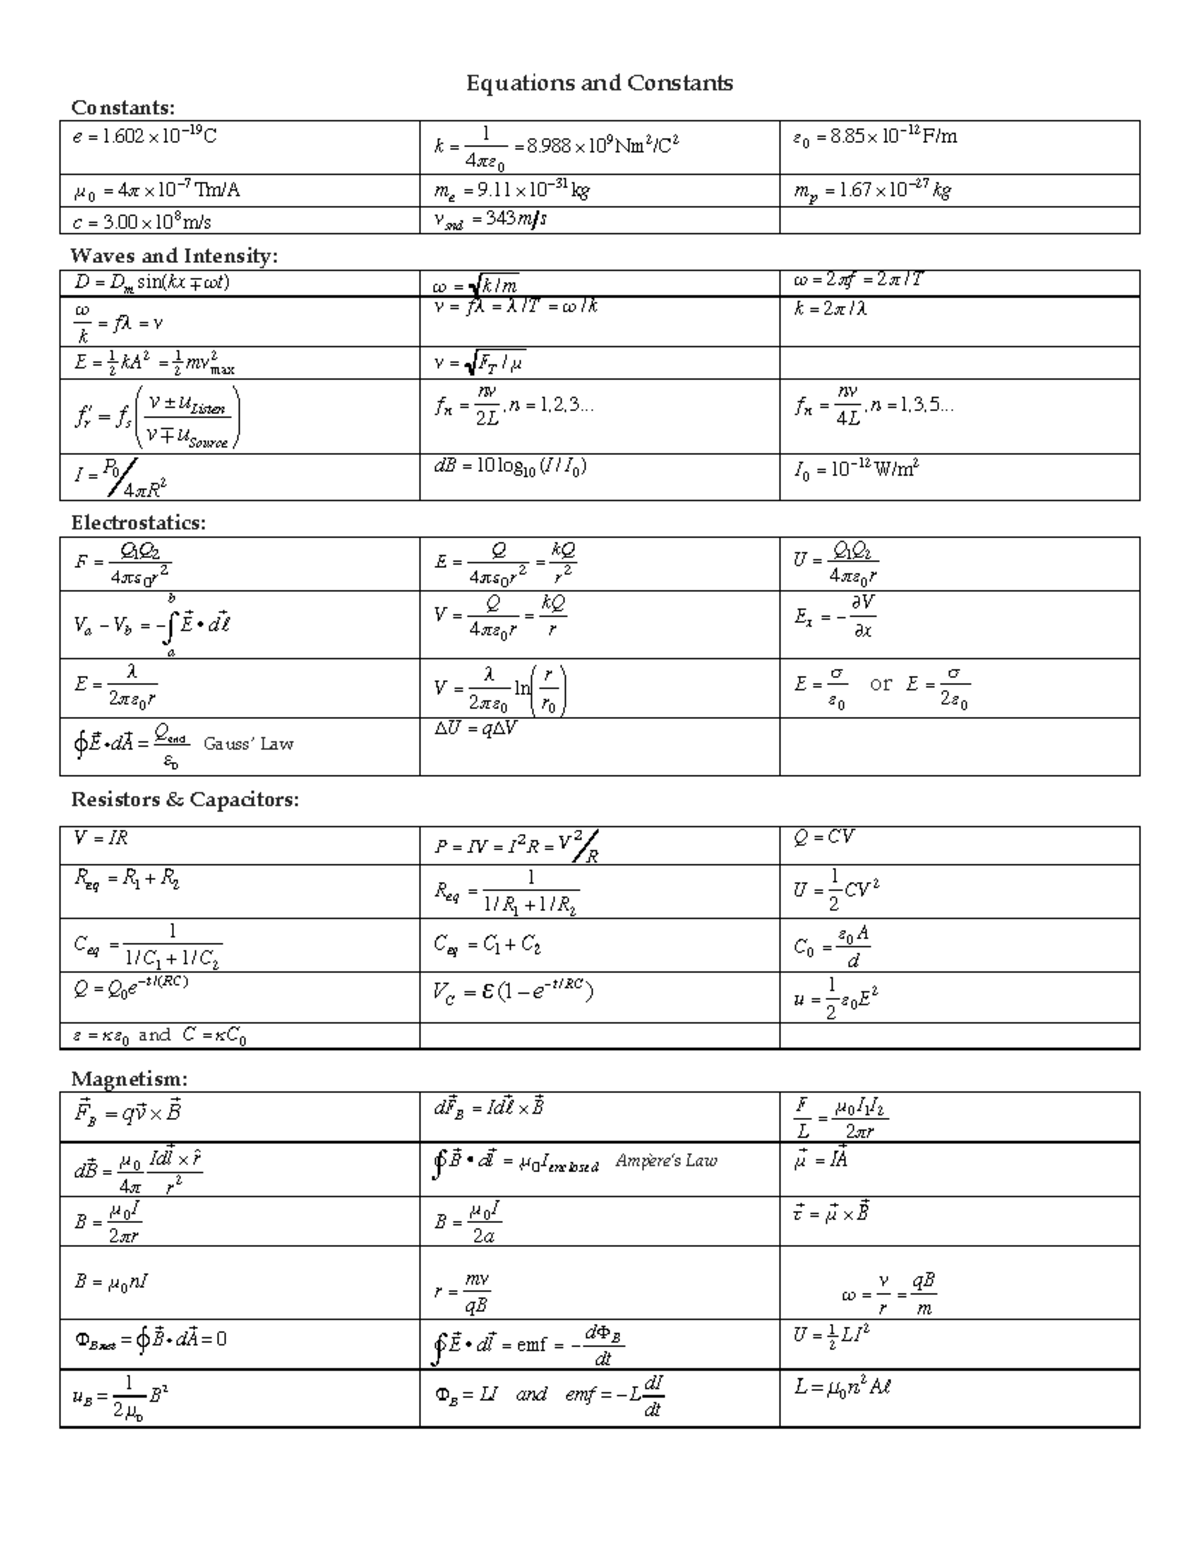 Equations and Constants
Constants:
e = 1.602 × 10⁻¹⁹ C
k = 1/(4πε₀) = 8.988 × 10⁹ Nm²/C²
ε₀ = 8.85 × 10⁻¹² F/m
μ₀ = 4π × 10⁻⁷ Tm/A
mₑ = 9.11 × 10⁻³¹ kg
m_p = 1.67 × 10⁻²⁷ kg
c = 3.00 × 10⁸ m/s
v_snd = 343 m/s
Waves and Intensity:
D = D_m sin(kx ∓ ωt)
ω = √(k / m)
ω = 2πf = 2π / T
ω/k = fλ = v
v = fλ = λ / T = ω / k
k = 2π / λ
E = ½ kA² = ½ mv²_max
v = √(F_T / μ)
f′_r = f_s((v ± u_Listen)/(v ∓ u_Source))
f_n = nv/2L, n = 1,2,3...
f_n = nv/4L, n = 1,3,5...
I = P₀/4πR²
dB = 10 log₁₀ (I / I₀)
I₀ = 10⁻¹² W/m²
Electrostatics:
F = Q₁Q₂/(4πε₀r²)
E = Q/(4πε₀r²) = kQ/r²
U = Q₁Q₂/(4πε₀r)
V_a − V_b = −∫_a^b E⃗ • dℓ⃗
V = Q/(4πε₀r) = kQ/r
E_x = −∂V/∂x
E = λ/(2πε₀r)
V = λ/(2πε₀) ln(r/r₀)
E = σ/ε₀ or E = σ/2ε₀
∮E⃗ • dA⃗ = Q_encl/ε₀ Gauss’ Law
ΔU = qΔV
Resistors & Capacitors:
V = IR
P = IV = I²R = V²/R
Q = CV
R_eq = R₁ + R₂
R_eq = 1/(1/R₁ + 1/R₂)
U = 1/2 CV²
C_eq = 1/(1/C₁ + 1/C₂)
C_eq = C₁ + C₂
C₀ = ε₀A/d
Q = Q₀e^(−t/(RC))
V_C = ℰ(1 − e^(−t/RC))
u = 1/2 ε₀E²
ε = κε₀ and C = κC₀
Magnetism:
F⃗_B = qv⃗ × B⃗
dF⃗_B = Idℓ⃗ × B⃗
F/L = μ₀I₁I₂/2πr
dB⃗ = μ₀/4π Idl⃗ × r̂/r²
∮B⃗ • dl⃗ = μ₀I_enclosed Ampère’s Law
μ⃗ = IA⃗
B = μ₀I/2πr
B = μ₀I/2a
τ⃗ = μ⃗ × B⃗
B = μ₀nI
r = mv/qB
ω = v/r = qB/m
Φ_Bnet = ∮B⃗ • dA⃗ = 0
∮E⃗ • dl⃗ = emf = −dΦ_B/dt
U = ½ LI²
u_B = 1/2μ₀ B²
Φ_B = LI and emf = −L dI/dt
L = μ₀n²Aℓ